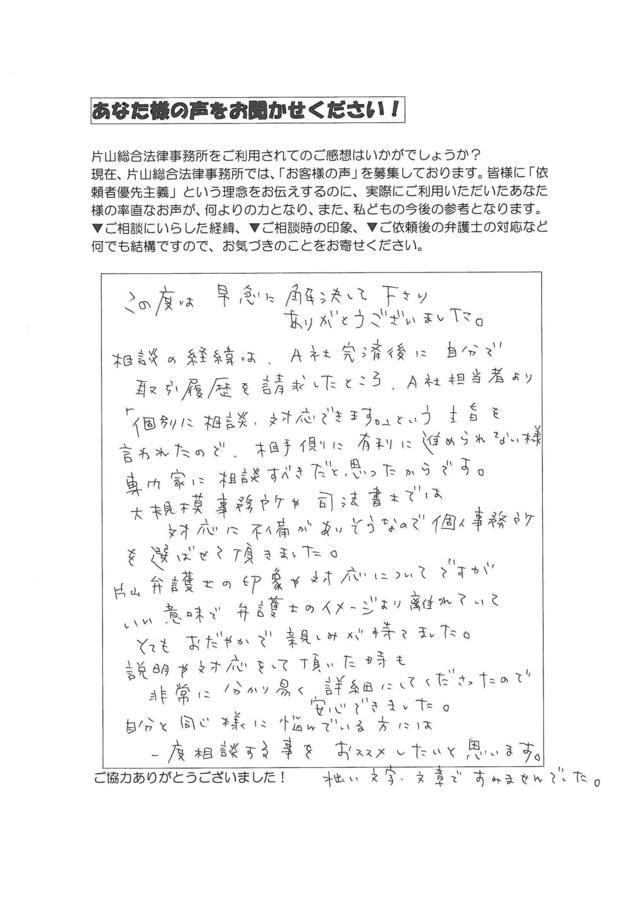 あなた様の声をお聞かせください！
片山総合法律事務所をご利用されてのご感想はいかがでしょうか？
現在、片山総合法律事務所では、「お客様の声」を募集しております。皆様に「依
頼者優先主義」という理念をお伝えするのに、実際にご利用いただいたあなた
様の率直なお声が、何よりの力となり、また、私どもの今後の参考となります。
▼ご相談にいらした経緯、▼ご相談時の印象、▼ご依頼後の弁護士の対応など
何でも結構ですので、お気づきのことをお寄せください。
この度は 早急に解決して下さり
ありがとうございました。
相談の経緯は、A社完済後に自分で
取引履歴を請求したところ、A社担当者より
「個別に相談、対応できます。」という主旨を
言われたので、相手側に有利に進められない様
専門家に相談すべきだと思ったからです。
大規模事務所や司法書士では
対応に不備がありそうなので個人事務所
を選ばせて頂きました。
片山弁護士の印象や対応についてですが
いい意味で弁護士のイメージより離れていて
とてもおだやかで親しみが持てました。
説明や対応をして頂いた時も
非常に分かり易く詳細にしてくださったので
安心できました。
自分と同じ様に悩んでいる方には
一度相談する事をおススメしたいと思います。
ご協力ありがとうございました！
拙い文字、文章ですみませんでした。